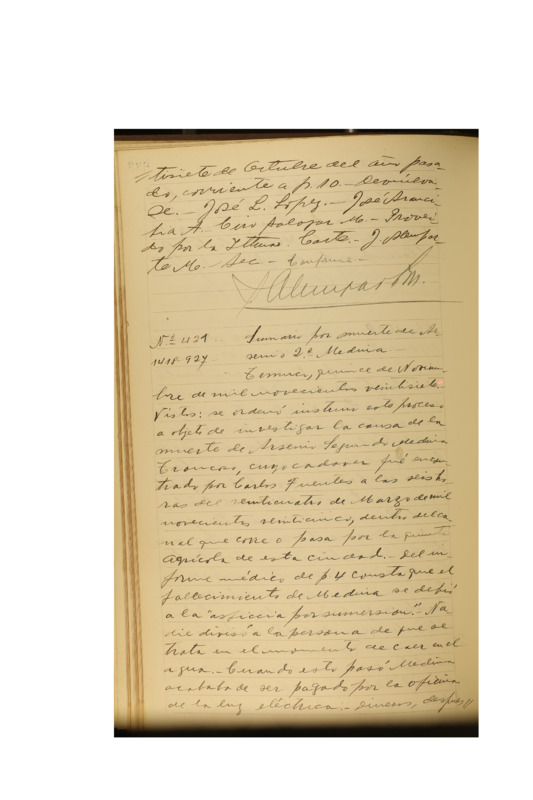 tisiete de Octubre del año pasa-
do, corriente a p. 10.- Devuélva-
se.- José L. López.- José Aranci-
bia A. Ciro Salazar M.- Provei-
do por la Iltma. Corte.- J. Alempar-
te M.- Sec - Conforme -
J Alemparte M.
Nº 421 Sumario por muerte de Ar-
14-18-927 senio 2.º Medina
Temuco, quince de Noviem-
bre de mil novecientos veintisiete
Vistos: se ordenó instruir este proceso
a objeto de investigar la causa de la
muerte de Arsenio Segundo Medina
Troncoso, cuyo cadaver fué encon-
trado por Carlos Fuentes a las seis ho-
ras del veinticuatro de Marzo de mil
novecientos veinticinco, dentro del ca-
nal que corre o pasa por la quinta
agrícola de esta ciudad.- Del in-
forme médico de p 4 consta que el
fallecimiento de Medina se debió
a la "asficcia por sumersión".- Na-
die divisó a la persona de que se
trata en el momento de caer en el
agua.- Cuando esto pasó Medina
acababa de ser pagado por la oficina
de la luz eléctrica.- después